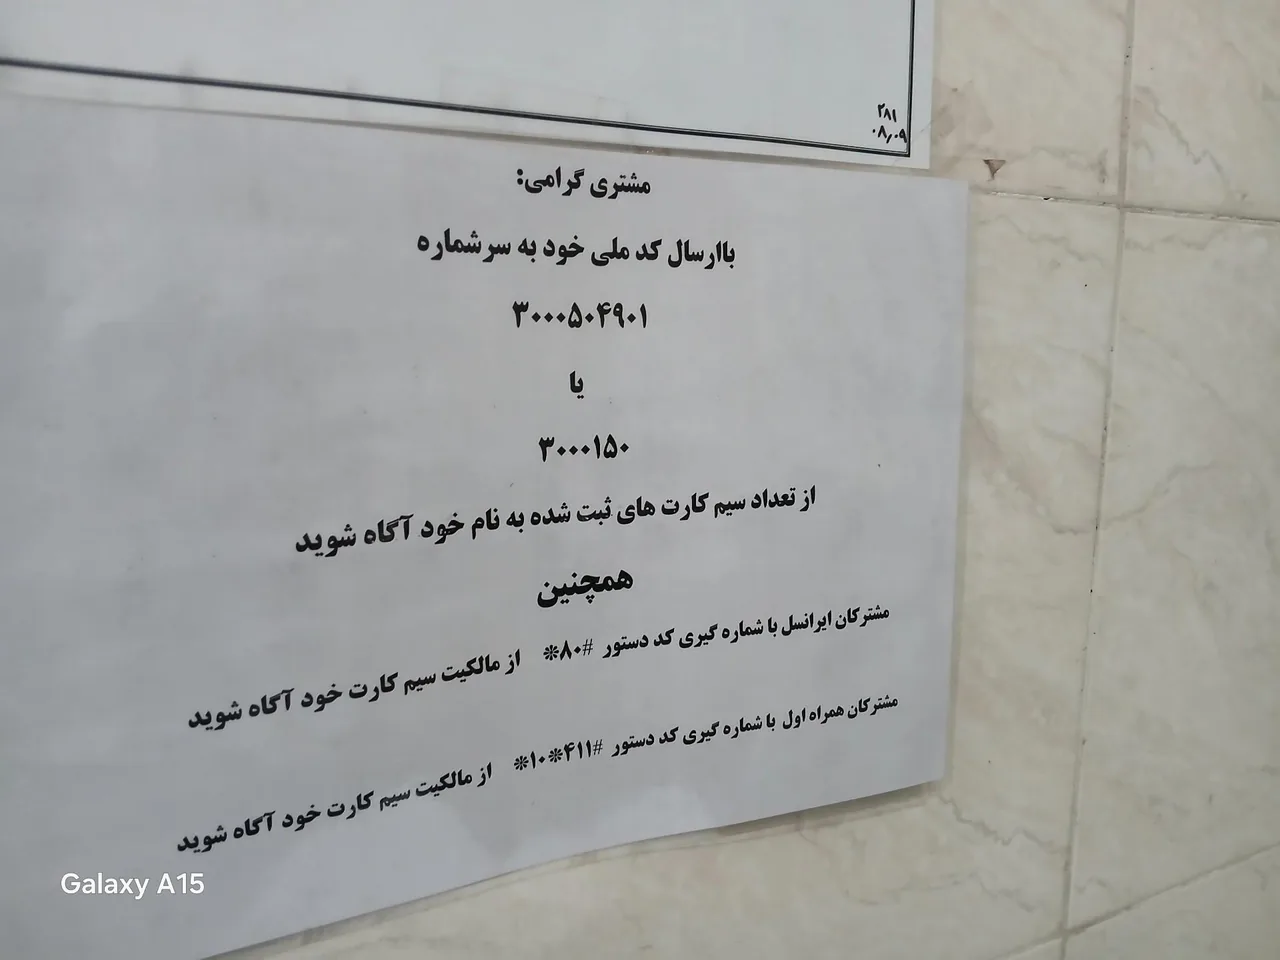 ۲۸۱
۰۸٫۰۹
مشتری گرامی:
باارسال کد ملی خود به سرشماره
۳۰۰۰۵۰۴۹۰۱
یا
۳۰۰۰۱۵۰
از تعداد سیم کارت های ثبت شده به نام خود آگاه شوید
همچنین
مشترکان ایرانسل با شماره گیری کد دستور #۸۰* از مالکیت سیم کارت خود آگاه شوید
مشترکان همراه اول با شماره گیری کد دستور #۴۱۱*۱۰* از مالکیت سیم کارت خود آگاه شوید
Galaxy A15